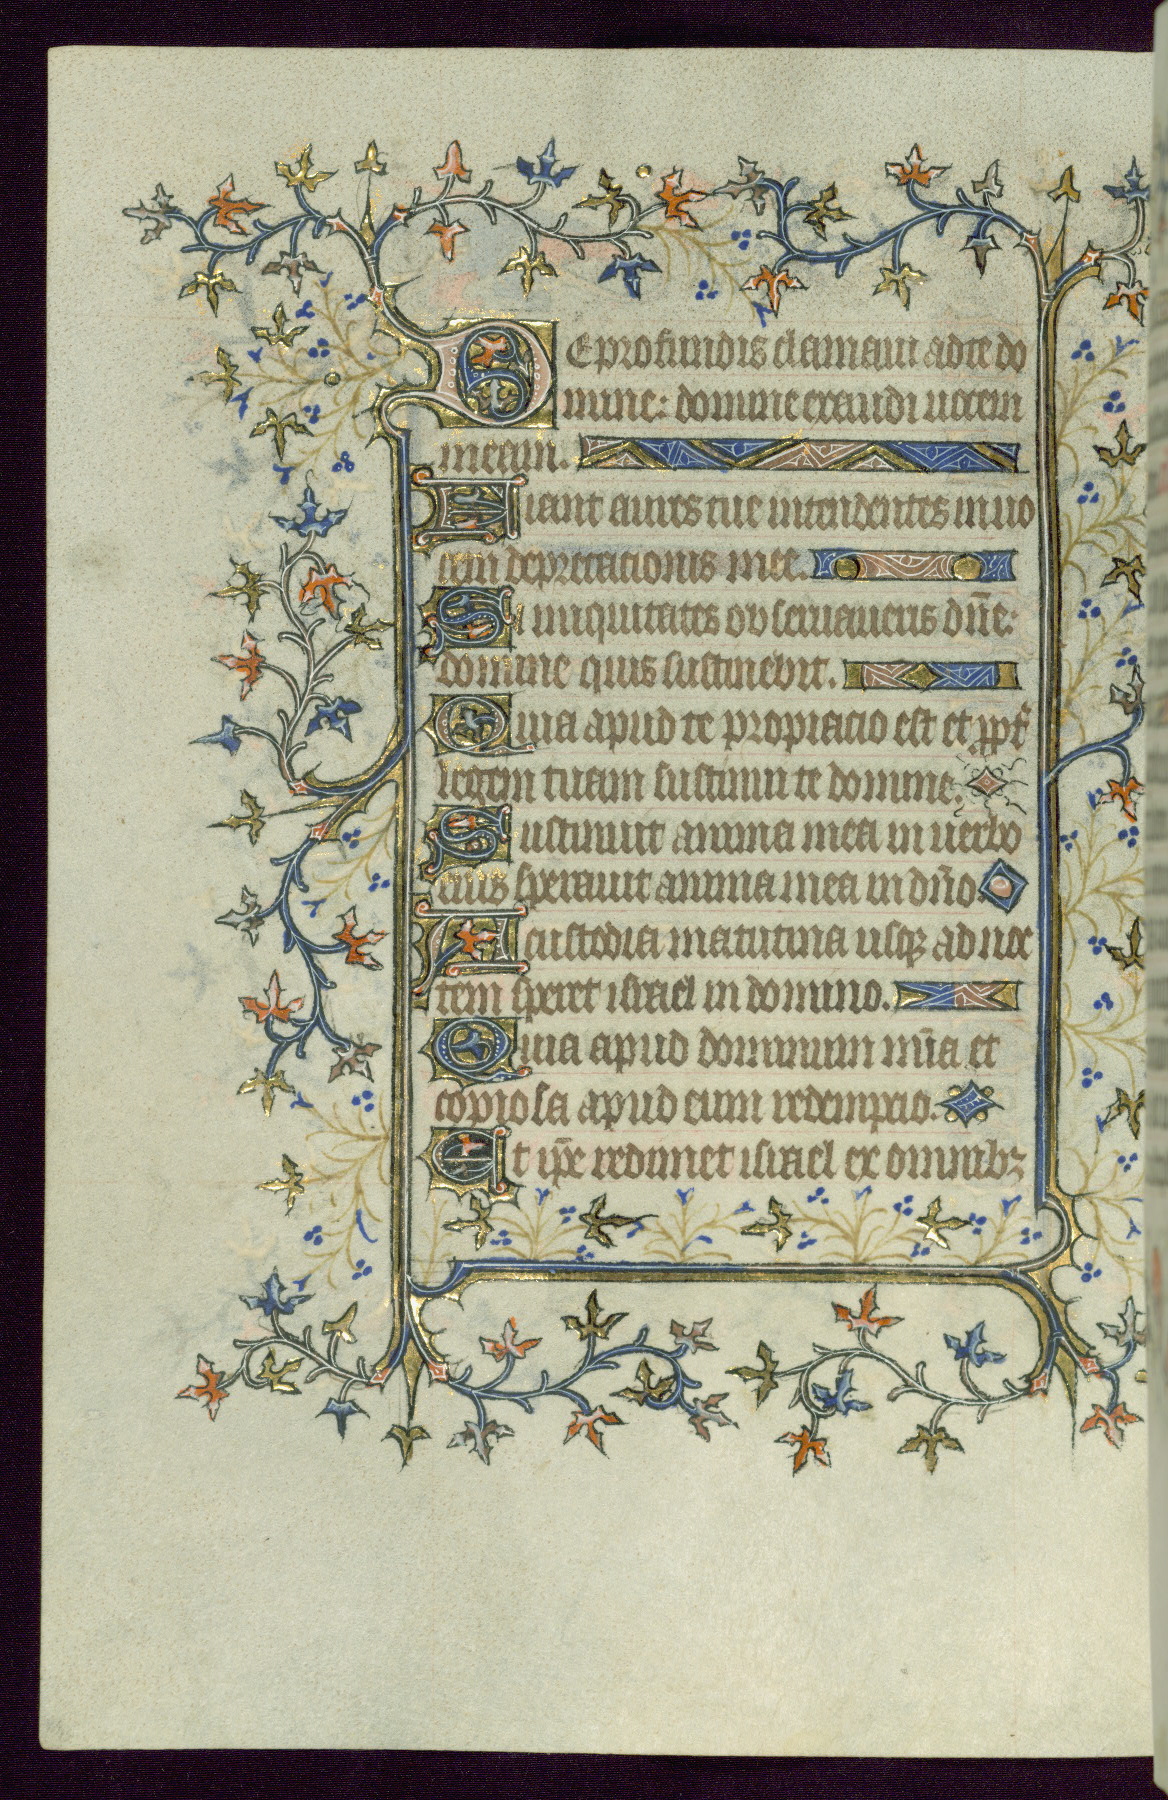 De profundis clamaui ad te do
mine: domine exaudi uocem
meam.
Fiant aures tue intendentes in uo
cem deprecacionis mee.
Si iniquitates obseruaueris dn̄e:
domine quis sustinebit.
Quia apud te propiciacio est et ꝓpt̄
legem tuam sustinui te domine.
Sustinuit anima mea in uerbo
eius sperauit anima mea in dn̄o.
A custodia matutina usqꝫ ad noc
tem speret israel in domino.
Quia apud dominum mīa et
copiosa apud eum redempcio.
Et ip̄e redimet israel ex omnibꝫ